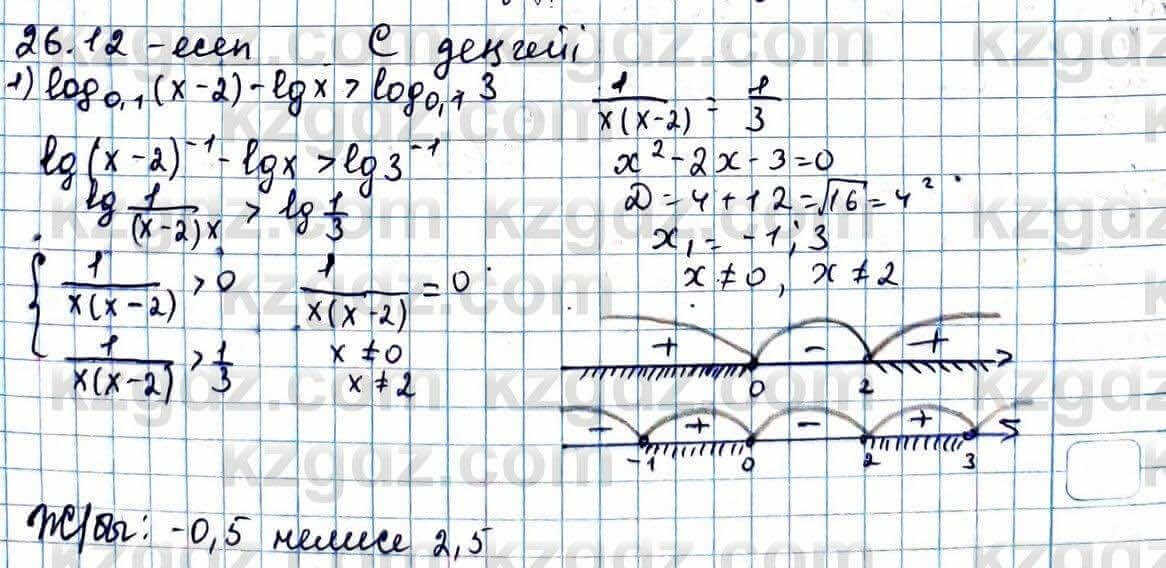 26.12 - есеп С деңгейі
1) log₀,₁(x-2) - lgx > log₀,₁ 3
lg(x-2)⁻¹ - lgx > lg3⁻¹
lg 1/((x-2)x) > lg 1/3
{ 1/(x(x-2)) > 0
1/(x(x-2)) > 1/3
1/(x(x-2)) = 0
x ≠ 0
x ≠ 2
1/(x(x-2)) = 1/3
x² - 2x - 3 = 0
D = 4 + 12 = √16 = 4²
x₁ = -1; 3
x ≠ 0, x ≠ 2
+ - +
0 2
- + - + 
-1 0 2 3
Ж/бы: -0,5 немесе 2,5
kzgdz.com